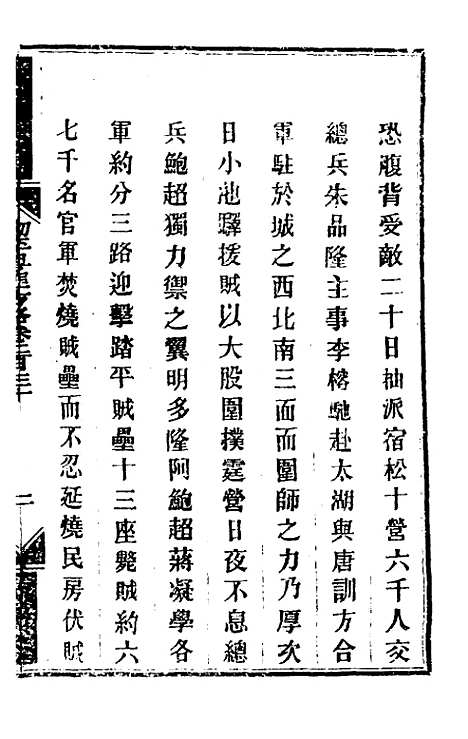 恐腹背受敵二十日抽派宿松十營六千人交
總兵朱品隆主事李榕馳赴太湖與唐訓方合
軍駐於城之西北南三面而圍師之力乃厚次
日小池驛援賊以大股圍撲霆營日夜不息總
兵鮑超獨力禦之翼明多隆阿鮑超蔣凝學各
軍約分三路迎擊踏平賊壘十三座斃賊約六
七千名官軍焚燒賊壘而不忍延燒民房伏賊
二